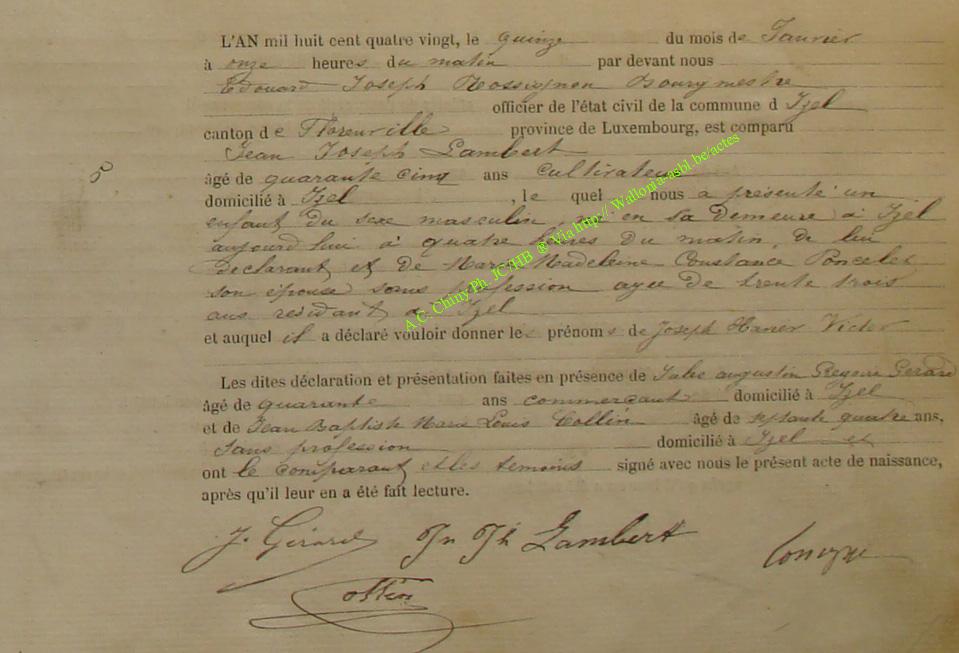 L'AN mil huit cent quatre vingt, le quinze du mois de Janvier
à onze heures du matin par devant nous
Edouard Joseph Rossignon Bourgmestre
officier de l'état civil de la commune d Izel
canton de Florenville province de Luxembourg, est comparu
Jean Joseph Lambert
5
âgé de quarante cinq ans cultivateur
domicilié à Izel, le quel nous a présenté un
enfant du sexe masculin, né en sa demeure à Izel
aujourd'hui à quatre heures du matin, de lui
déclarant et de Marie Madeleine Constance Poncelet
son épouse sans profession agée de trente trois
ans residant à Izel
et auquel il a déclaré vouloir donner les prénoms de Joseph Xavier Victor
Les dites déclaration et présentation faites en présence de Jules augustin Gregoire Gerard
âgé de quarante ans commercant domicilié à Izel
et de Jean Baptiste Marie Louis Collin âgé de septante quatre ans,
sans profession domicilié à Izel et
ont le comparant et les temoins signé avec nous le présent acte de naissance,
après qu'il leur en a été fait lecture.
J. Gérard Jn Jh Lambert
Collin
A.C. Chiny Ph. JC/HB ® Via http://.Wallonia-asbl.be/actes